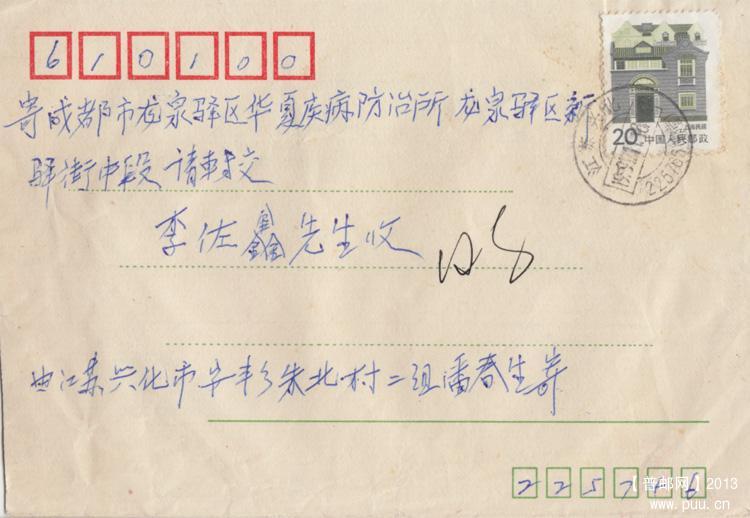 610100
寄成都市龙泉驿区华夏疾病防治所 龙泉驿区新
驿街中段 请转交
李佐鑫先生收
由江苏兴化市安丰乡朱北村二组潘春生寄
225746
上海民居
20 中国人民邮政
江苏
【普邮网】2013
www.puu.cn